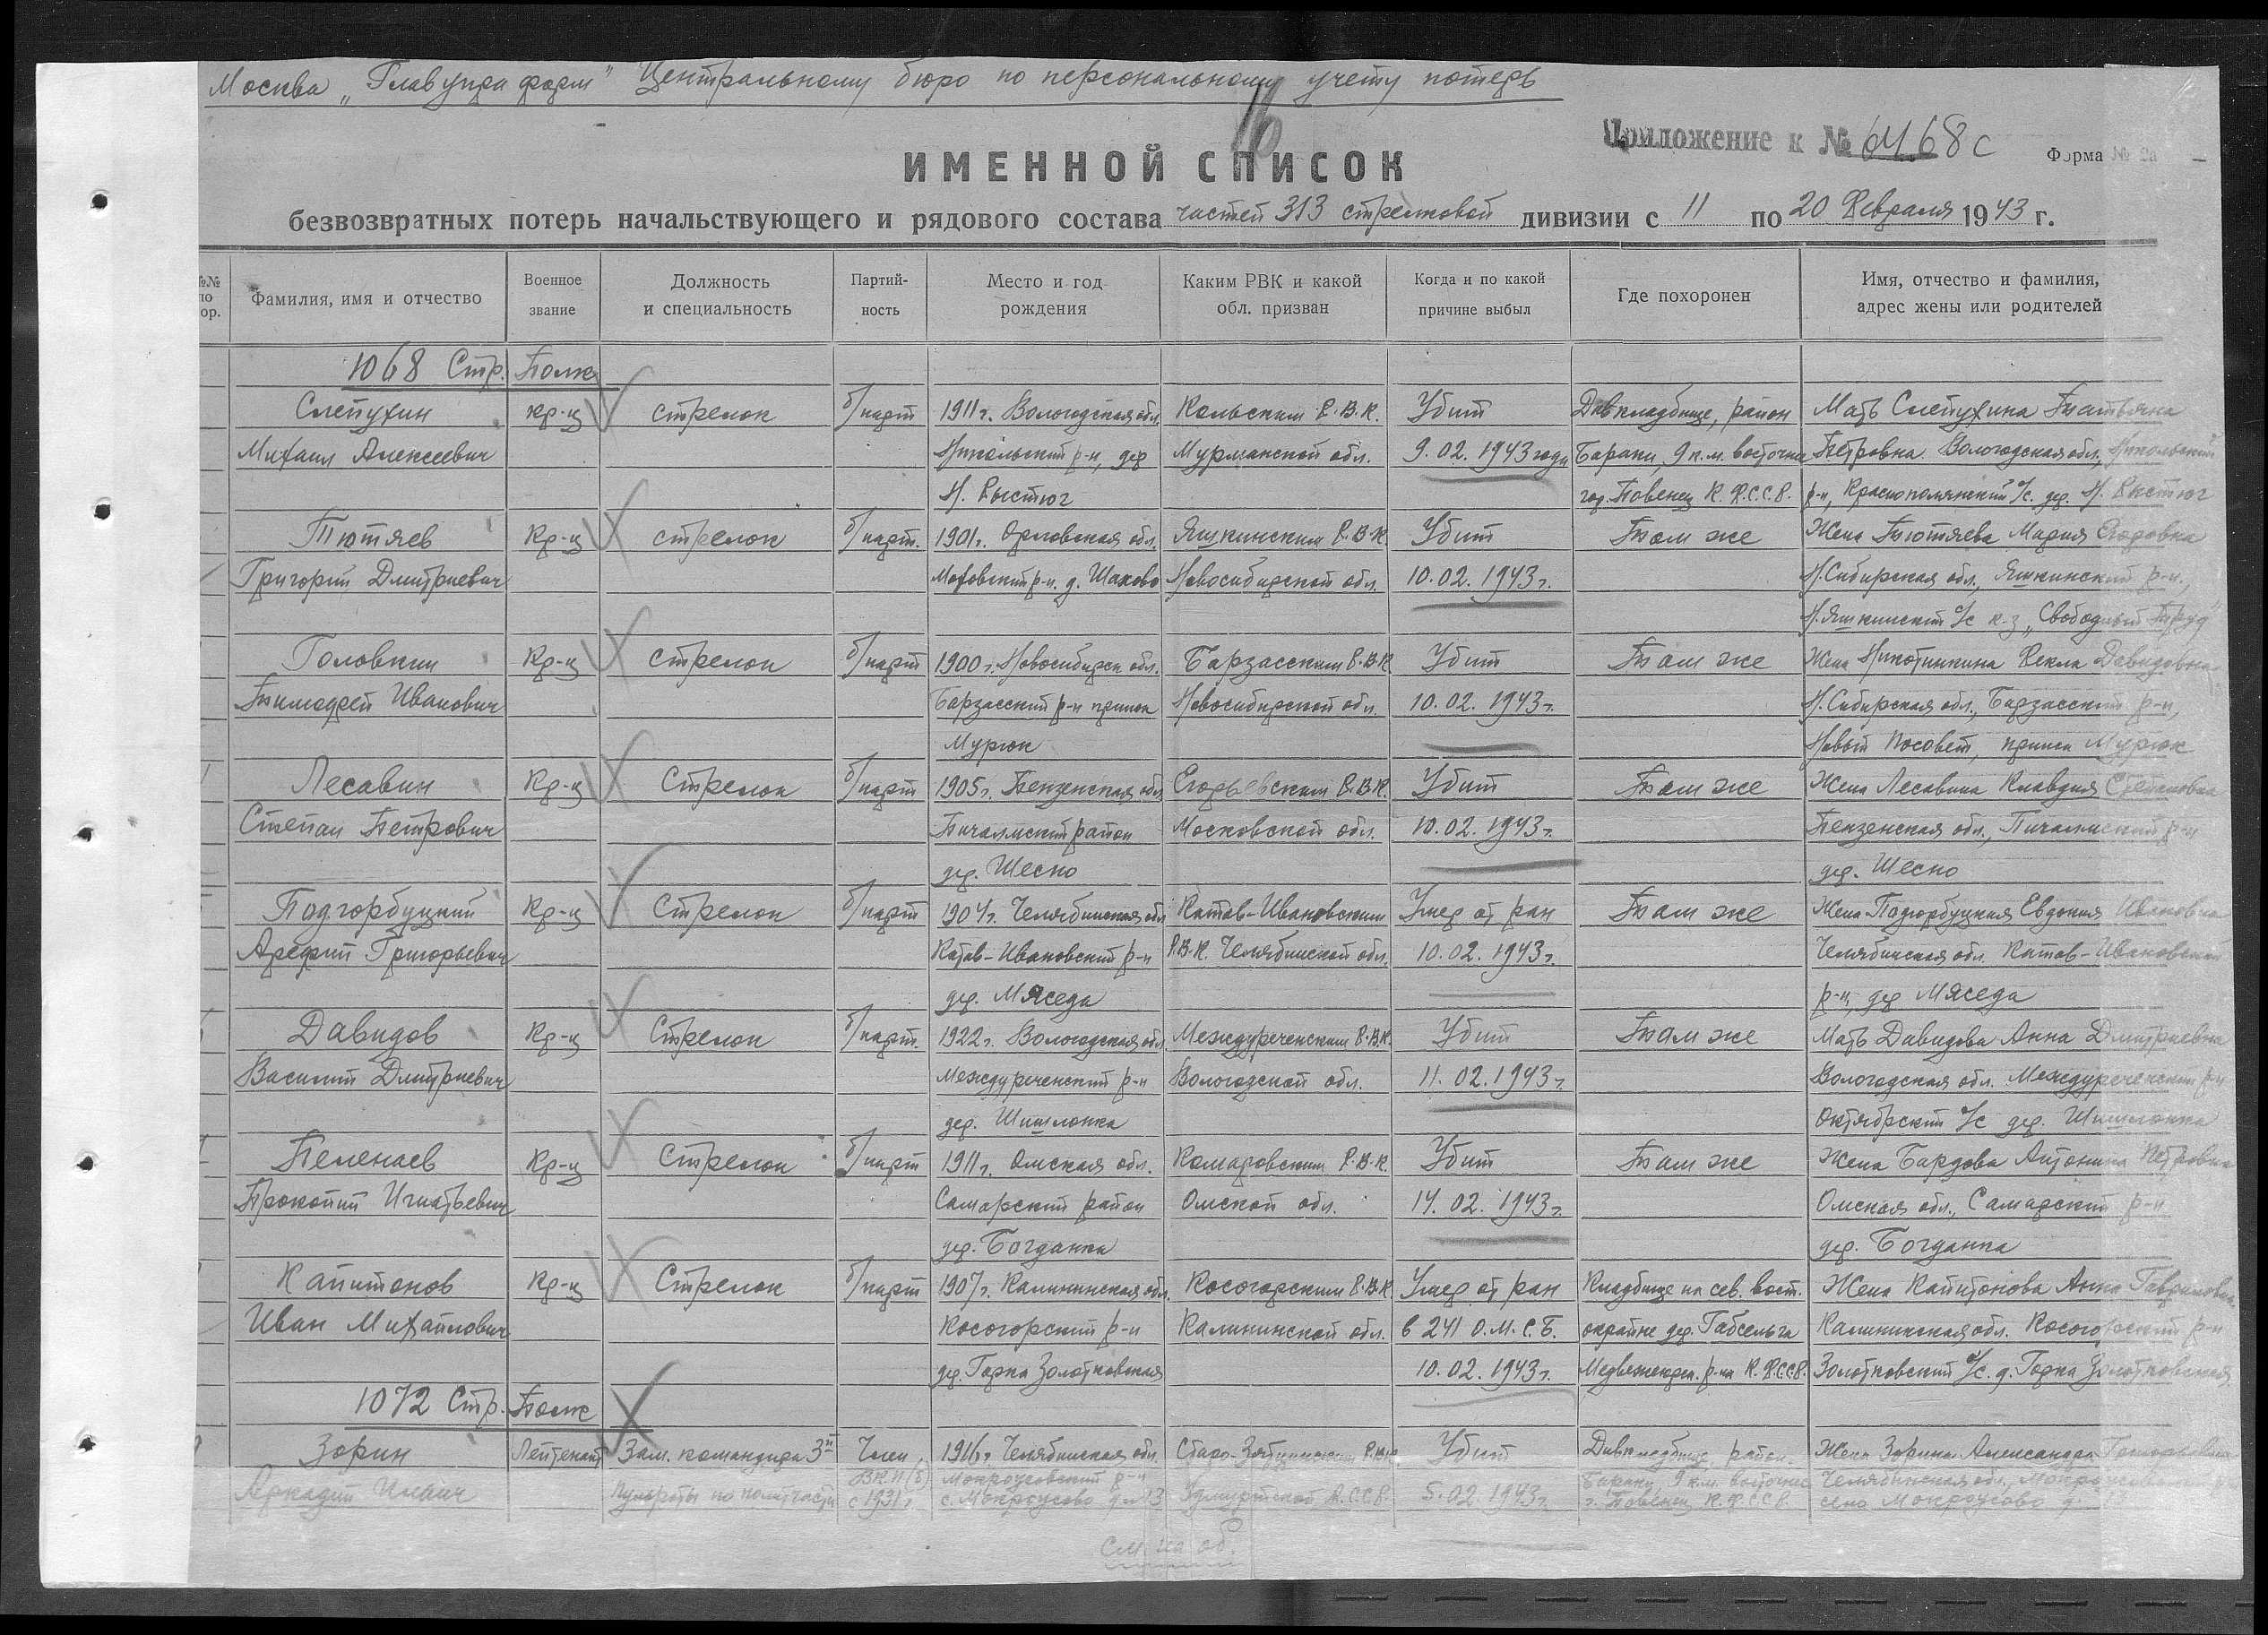 Москва „Главупраформ" Центральному бюро по персональному учету потерь
16
Приложение к №
Форма № 2а
ИМЕННОЙ СПИСОК
безвозвратных потерь начальствующего и рядового состава частей 313 стрелковой дивизии с 11 по 20 Февраля 1943 г.
№№ по пор.
Фамилия, имя и отчество
Военное звание
Должность и специальность
Партий-ность
Место и год рождения
Каким РВК и какой обл. призван
Когда и по какой причине выбыл
Где похоронен
Имя, отчество и фамилия, адрес жены или родителей
1068 Стр. Полк
Слепухин кр-ц стрелок б/парт 1911г. Вологодская обл. Кольским Р.В.К. Убит Дивкладбище, район Мать Слепухина Татьяна
Михаил Алексеевич Никольский р-н, дер Мурманской обл. 9.02.1943 года Бараки, 9 к.м. восточнее Петровна. Вологодская обл., Никольский
Н. Рыстюг гор. Повенец К.Ф.С.С.Р. р-н, Краснополянский с/с. дер. Н. Рыстюг
Тютяев Кр-ц стрелок б/парт. 1901г. Орловская обл. Яшкинским Р.В.К. Убит Там же Жена Тютяева Мария Егоровна
Григорий Дмитриевич Моховский р-н. д. Шахово Новосибирской обл. 10.02.1943г. Н.Сибирская обл., Яшкинский р-н.,
Н.Яшкинский с/с к-з „Свободный Труд"
Головкин Кр-ц стрелок б/парт 1900г. Новосибирск обл. Барзасским Р.В.К. Убит Там же Жена Фекла Давидовна
Тимофей Иванович Барзасский р-н прииск Новосибирской обл. 10.02.1943г. Н.Сибирская обл., Барзасский р-н,
Мурюк Новый посовет, прииск Мурюк
Лесавин Кр-ц Стрелок б/парт 1905г. Пензенская обл Егорьевским Р.В.К. Убит Там же Жена Лесавина Клавдия Степановна
Степан Петрович район Московской обл. 10.02.1943г. Пензенская обл., р-н
дер. Шесно дер. Шесно
Подгорбуцкий Кр-ц Стрелок б/парт 1904г. Челябинская обл Катав-Ивановским Умер от ран Там же Жена Подгорбуцкая Евдокия Ивановна
Арефий Григорьевич Катав-Ивановский р-н Р.В.К. Челябинской обл. 10.02.1943г. Челябинская обл. Катав-Ивановский
дер. Мяседа р-н, дер Мяседа
Давидов Кр-ц Стрелок б/парт. 1922г. Вологодская обл. Междуреченским Р.В.К. Убит Там же Мать Давидова Анна Дмитриевна
Василий Дмитриевич Междуреченский р-н Вологодской обл. 11.02.1943г. Вологодская обл. Междуреченский р-н
дер. Шишлонка Октябрский с/с дер. Шишлонка
Пеленаев Кр-ц Стрелок б/парт 1911г. Омская обл. Комаровским Р.В.К. Убит Там же Жена Бардова Антонина Петровна
Прокопий Игнатьевич Самарский район Омской обл. 14.02.1943г. Омская обл., Самарский р-н
дер. Богданка дер. Богданка
Капитонов Кр-ц Стрелок б/парт 1907г. Калининская обл. Косогорским Р.В.К. Умер от ран Кладбище на сев. вост. Жена Капитонова Анна Гавриловна
Иван Михайлович Косогорский р-н Калининской обл. в 241 О.М.С.Б. окраине дер. Габсельга Калининская обл. Косогорский р-н
дер. Горка Золотковская 10.02.1943г. Медвежегор. р-на К.Ф.С.С.Р. Золотковский с/с. д. Горка Золотковская
1072 Стр. Полк
Зорин Лейтенант Зам. командира 3й Член 1916г Челябинская обл. Р.В.К. Убит Дивкладбище, район Жена Зорина Александра Григорьевна
Аркадий пульроты по политчасти ВКП(б) с 1931г Мокроусовский р-н с. Мокроусово д. № 13 Удмуртской А.С.С.Р. 5.02.1943г. Бараки, 9 к.м. восточнее г. Повенец К.Ф.С.С.Р. Челябинская обл., Мокроусовский р-н село Мокроусово д.
см. на об.